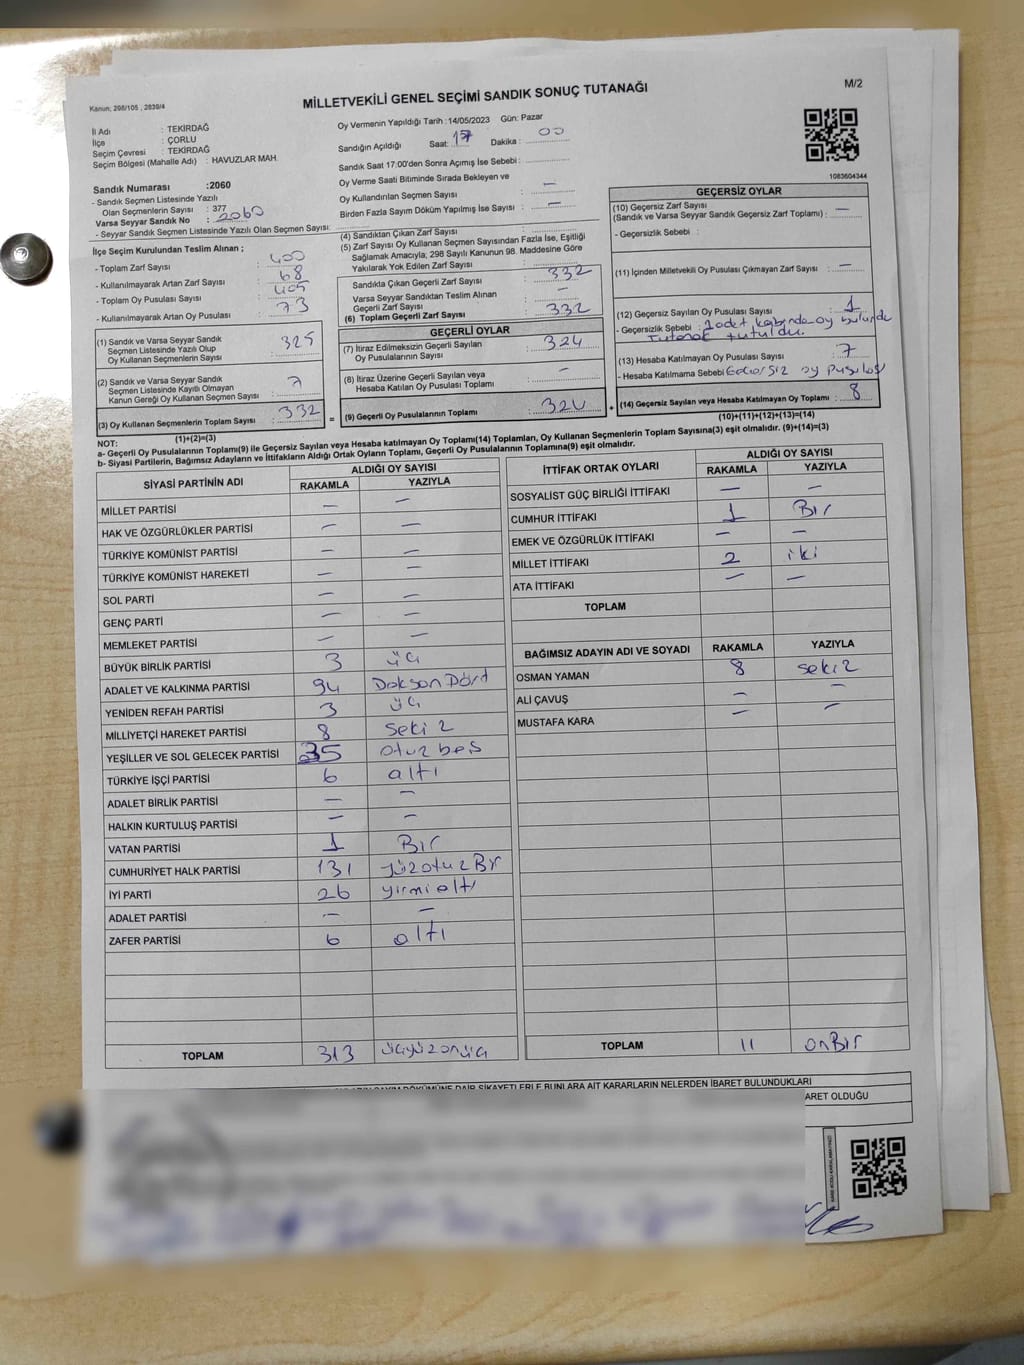 MİLLETVEKİLİ GENEL SEÇİMİ SANDIK SONUÇ TUTANAĞI
M/2
Kanun; 298/105 , 2839/4
İl Adı : TEKİRDAĞ
İlçe : ÇORLU
Seçim Çevresi : TEKİRDAĞ
Seçim Bölgesi (Mahalle Adı) : HAVUZLAR MAH.
Sandık Numarası :2060
- Sandık Seçmen Listesinde Yazılı
Olan Seçmenlerin Sayısı : 377
Varsa Seyyar Sandık No : 2060
- Seyyar Sandık Seçmen Listesinde Yazılı Olan Seçmen Sayısı:
Oy Vermenin Yapıldığı Tarih :14/05/2023 Gün: Pazar
Sandığın Açıldığı Saat: 17 Dakika : 00
Sandık Saat 17:00'den Sonra Açımış İse Sebebi :
Oy Verme Saati Bitiminde Sırada Bekleyen ve
Oy Kullandırılan Seçmen Sayısı : —
Birden Fazla Sayım Döküm Yapılmış İse Sayısı : —
1083604344
İlçe Seçim Kurulundan Teslim Alınan ;
- Toplam Zarf Sayısı : 400
- Kullanılmayarak Artan Zarf Sayısı : 68
- Toplam Oy Pusulası Sayısı : 405
- Kullanılmayarak Artan Oy Pusulası : 73
(1) Sandık ve Varsa Seyyar Sandık
Seçmen Listesinde Yazılı Olup
Oy Kullanan Seçmenlerin Sayısı : 325
(2) Sandık ve Varsa Seyyar Sandık
Seçmen Listesinde Kayıtlı Olmayan
Kanun Gereği Oy Kullanan Seçmen Sayısı : 7
(3) Oy Kullanan Seçmenlerin Toplam Sayısı : 332
(1)+(2)=(3)
(4) Sandıktan Çıkan Zarf Sayısı
(5) Zarf Sayısı Oy Kullanan Seçmen Sayısından Fazla İse, Eşitliği
Sağlamak Amacıyla; 298 Sayılı Kanunun 98. Maddesine Göre
Yakılarak Yok Edilen Zarf Sayısı
Sandıkta Çıkan Geçerli Zarf Sayısı : 332
Varsa Seyyar Sandıktan Teslim Alınan
Geçerli Zarf Sayısı : —
(6) Toplam Geçerli Zarf Sayısı : 332
GEÇERLİ OYLAR
(7) İtiraz Edilmeksizin Geçerli Sayılan
Oy Pusulalarının Sayısı : 324
(8) İtiraz Üzerine Geçerli Sayılan veya
Hesaba Katılan Oy Pusulaları Toplamı : —
= (9) Geçerli Oy Pusulalarının Toplamı : 324
GEÇERSİZ OYLAR
(10) Geçersiz Zarf Sayısı
(Sandık ve Varsa Seyyar Sandık Geçersiz Zarf Toplamı) : —
- Geçersizlik Sebebi :
(11) İçinden Milletvekili Oy Pusulası Çıkmayan Zarf Sayısı : —
(12) Geçersiz Sayılan Oy Pusulası Sayısı : 1
- Geçersizlik Sebebi : 1 adet kabinde oy bulundu
Tutanak tutuldu.
(13) Hesaba Katılmayan Oy Pusulası Sayısı : 7
- Hesaba Katılmama Sebebi Geçersiz oy pusulası
+ (14) Geçersiz Sayılan veya Hesaba Katılmayan Oy Toplamı : 8
(10)+(11)+(12)+(13)=(14)
NOT:
a- Geçerli Oy Pusulalarının Toplamı(9) ile Geçersiz Sayılan veya Hesaba katılmayan Oy Toplamı(14) Toplamları, Oy Kullanan Seçmenlerin Toplam Sayısına(3) eşit olmalıdır. (9)+(14)=(3)
b- Siyasi Partilerin, Bağımsız Adayların ve İttifakların Aldığı Ortak Oyların Toplamı, Geçerli Oy Pusulalarının Toplamına(9) eşit olmalıdır.
SİYASİ PARTİNİN ADI ALDIĞI OY SAYISI
RAKAMLA YAZIYLA
MİLLET PARTİSİ — —
HAK VE ÖZGÜRLÜKLER PARTİSİ — —
TÜRKİYE KOMÜNİST PARTİSİ — —
TÜRKİYE KOMÜNİST HAREKETİ — —
SOL PARTİ — —
GENÇ PARTİ — —
MEMLEKET PARTİSİ — —
BÜYÜK BİRLİK PARTİSİ 3 üç
ADALET VE KALKINMA PARTİSİ 94 Doksan Dört
YENİDEN REFAH PARTİSİ 3 üç
MİLLİYETÇİ HAREKET PARTİSİ 8 Sekiz
YEŞİLLER VE SOL GELECEK PARTİSİ 35 otuz beş
TÜRKİYE İŞÇİ PARTİSİ 6 altı
ADALET BİRLİK PARTİSİ — —
HALKIN KURTULUŞ PARTİSİ — —
VATAN PARTİSİ 1 Bir
CUMHURİYET HALK PARTİSİ 131 yüzotuz Bir
İYİ PARTİ 26 yirmi altı
ADALET PARTİSİ — —
ZAFER PARTİSİ 6 altı
TOPLAM 313 üçyüzonüç
İTTİFAK ORTAK OYLARI ALDIĞI OY SAYISI
RAKAMLA YAZIYLA
SOSYALİST GÜÇ BİRLİĞİ İTTİFAKI — —
CUMHUR İTTİFAKI 1 Bir
EMEK VE ÖZGÜRLÜK İTTİFAKI — —
MİLLET İTTİFAKI 2 iki
ATA İTTİFAKI — —
TOPLAM
BAĞIMSIZ ADAYIN ADI VE SOYADI RAKAMLA YAZIYLA
OSMAN YAMAN 8 sekiz
ALİ ÇAVUŞ — —
MUSTAFA KARA — —
TOPLAM 11 onBir
SAYIM DÖKÜMÜNE DAİR ŞİKAYETLERLE BUNLARA AİT KARARLARIN NELERDEN İBARET BULUNDUKLARI
ARET OLDUĞU